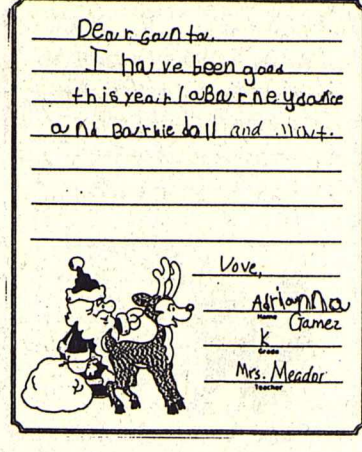 Dear santa.
I have been good
this year I a Barney dance
and Barbie doll and
Vove,
Adrianna
Name
Gamez
K
Grade
Mrs. Meador
Teacher